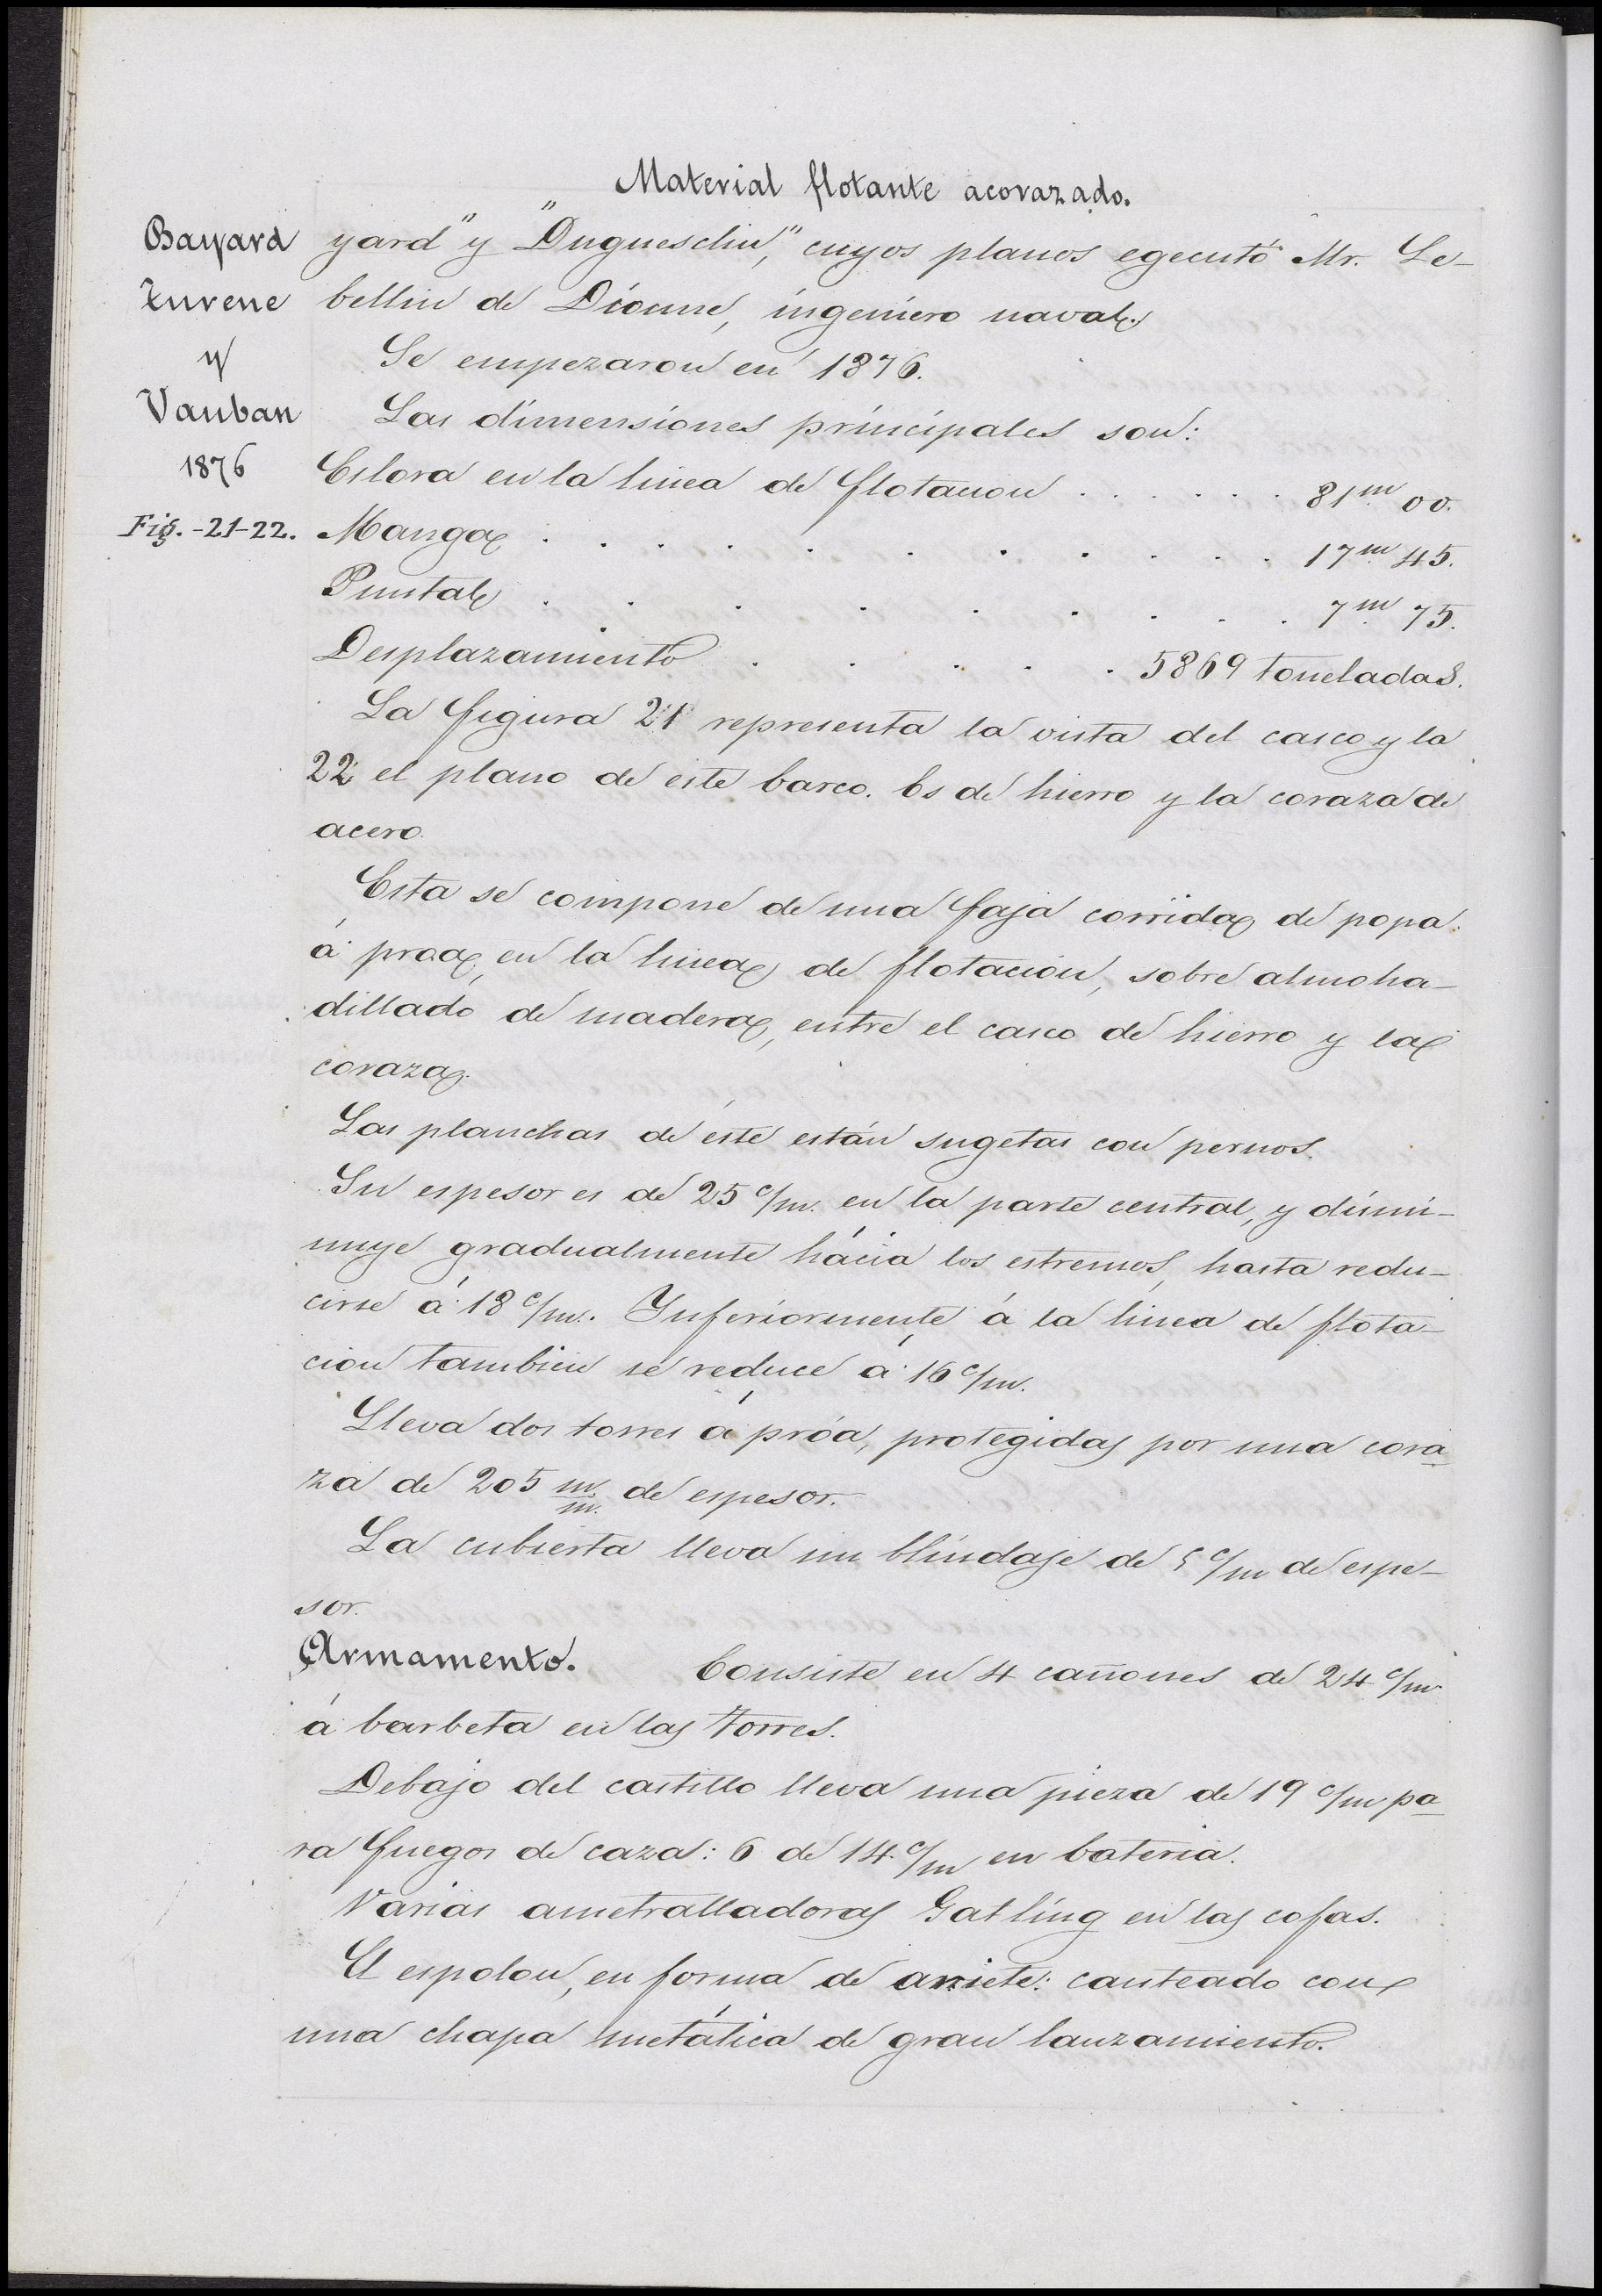 Material flotante acorazado.
Bayard
Turene
y
Vauban
1876
Fig. -21-22.
yard" y "Duguesclin," cuyos planos egecutó Mr. Le-
bellin de Dionne, ingeniero naval.
Se empezaron en 1876.
Las dimensiones principales son:
Eslora en la linea de flotacion . . . . . . 81m 00.
Manga . . . . . . . . . . . 17m 45.
Puntal . . . . . . . . . 7m 75.
Desplazamiento . . . . . 5869 toneladas.
La figura 21 representa la vista del casco y la
22 el plano de este barco. Es de hierro y la coraza de
acero.
Esta se compone de una faja corrida de popa
á proa, en la linea de flotacion, sobre almoha-
dillado de madera, entre el casco de hierro y la
coraza.
Las planchas de éste están sugetas con pernos.
Su espesor es de 25 c/m. en la parte central, y dismi-
nuye gradualmente hácia los estremos, hasta redu-
cirse á 18 c/m. Inferiormente á la linea de flota-
cion tambien se reduce á 16 c/m.
Lleva dos torres á próa, protegidas por una cora-
za de 205 m/m. de espesor.
La cubierta lleva un blindaje de 5 c/m de espe-
sor.
Armamento. Consiste en 4 cañones de 24 c/m.
á barbeta en las torres.
Debajo del castillo lleva una pieza de 19 c/m pa-
ra fuegos de caza: 6 de 14 c/m en bateria.
Varias ametralladoras Gatling en las cofas.
El espolon, en forma de ariete: canteado con
una chapa metálica de gran lanzamiento.